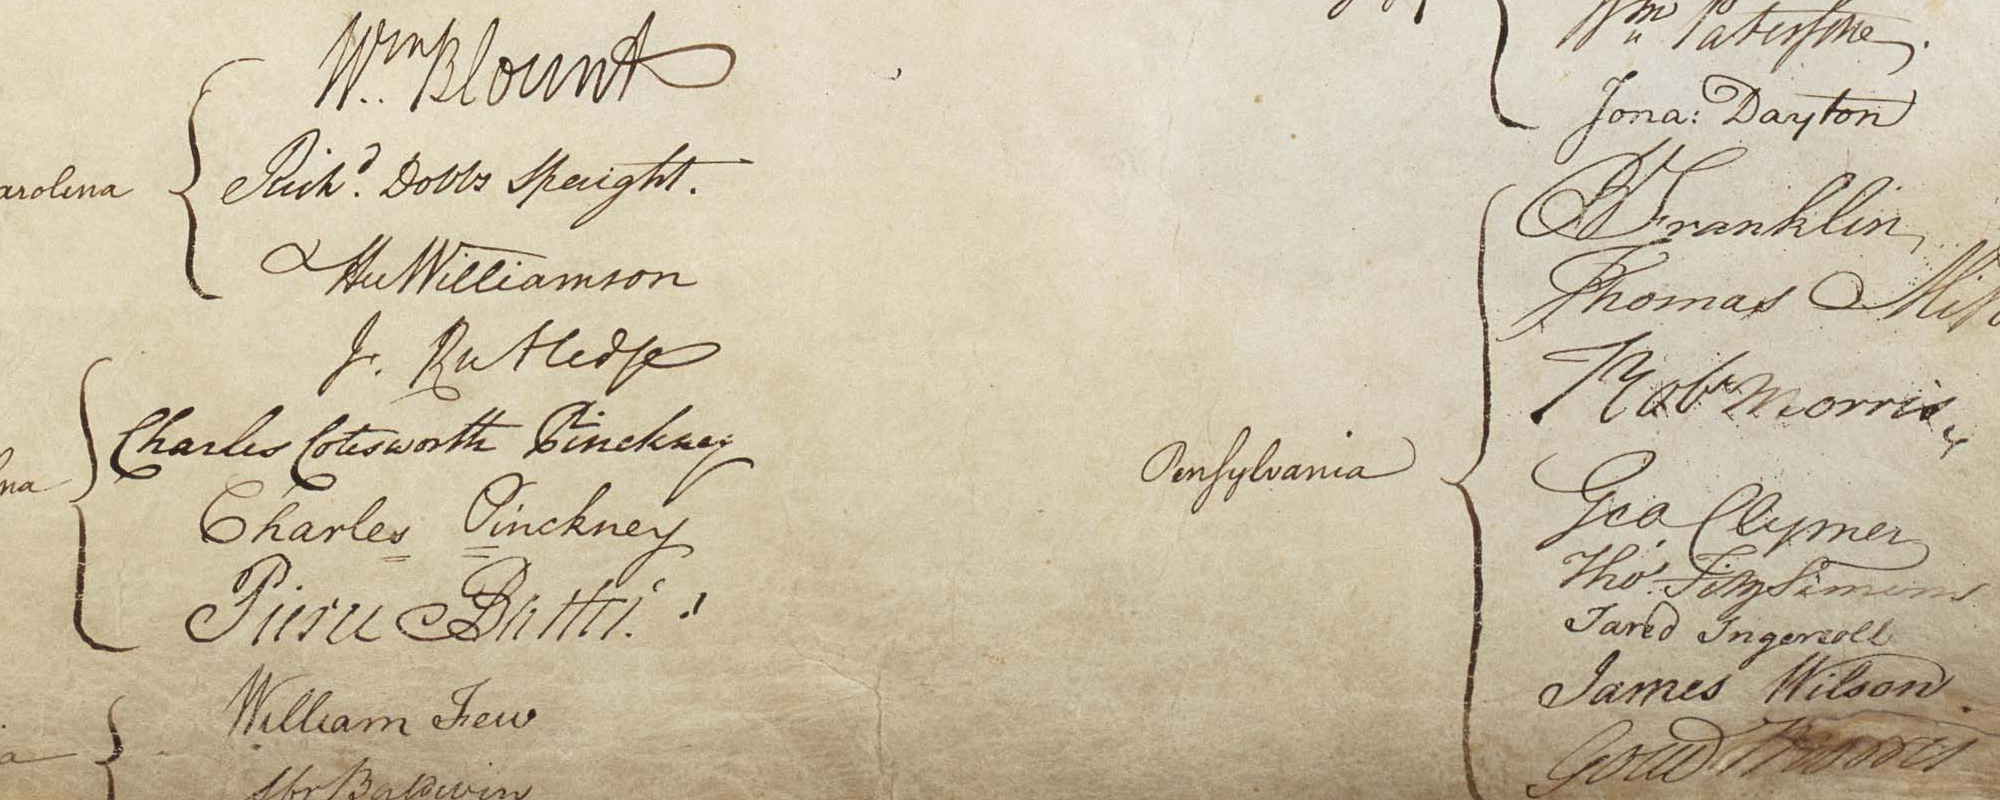 Wm Blount
Richd. Dobbs Spaight.
arolina
Hu Williamson
J. Rutledge
Charles Cotesworth Pinckney
na
Charles Pinckney
Pierce Butler.
William Few
a
Abr Baldwin
Wm Paterson.
Jona: Dayton
B Franklin
Thomas Miff
Robt Morris
Pensylvania
Geo Clymer
Thos. FitzSimons
Jared Ingersoll
James Wilson.
Gouv Morris